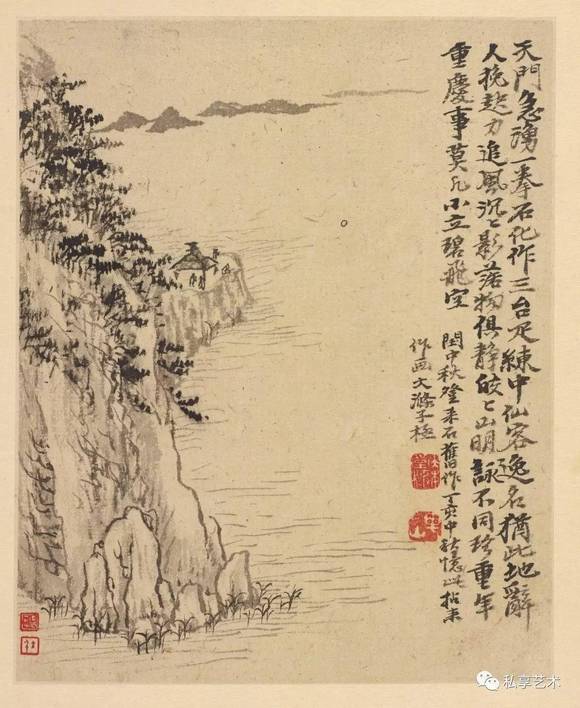 天門急湧一拳石化作三台疋練中仙客逸名猶此地辭
人挽起力追風沉〻影落物俱静皎〻山明詠不同路重年
重慶事莫凡小立碧飛空
閏中秋登采石舊作丁亥中秋憶此拈來
作画大滌子極
私享艺术